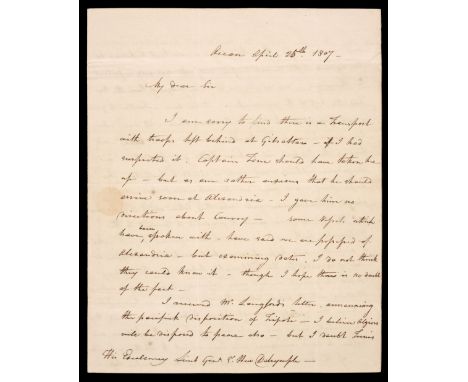 Ocean April 25th. 1807 -
My dear Sir
I am sorry to find there is a Transport
with troops left behind at Gibraltar - if I had
suspected it. Captain should have taken her
up - but as am rather anxious that he should
arrive soon at Alexandria - I gave him no
directions about Convoy - some Vessel which
have been spoken with - have said we are possessed of
Alexandria - but examining dates. I do not think
they could know it - though I hope there is no doubt
of the fact -
I received Mr. Langford's letter, announcing
the pacifick disposition of Tripoli - I believe Algiers
will be disposed to peace also - but I doubt Tunis
His Excellency Lieut Genl. Sr. Hew Dalrymple -